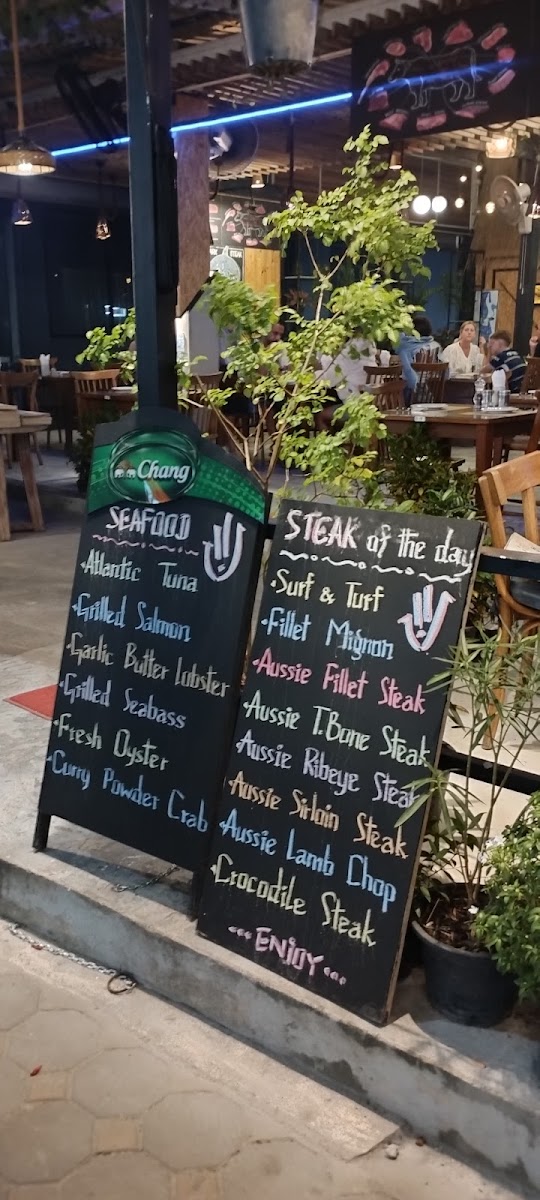 Chang
SEAFOOD
•Atlantic Tuna
•Grilled Salmon
•Garlic Butter Lobster
•Grilled Seabass
•Fresh Oyster
•Curry Powder Crab
STEAK of the day
•Surf & Turf
•Fillet Mignon
•Aussie Fillet Steak
•Aussie T.Bone Steak
•Aussie Ribeye Steak
•Aussie Sirloin Steak
•Aussie Lamb Chop
•Crocodile Steak
•••ENJOY•••